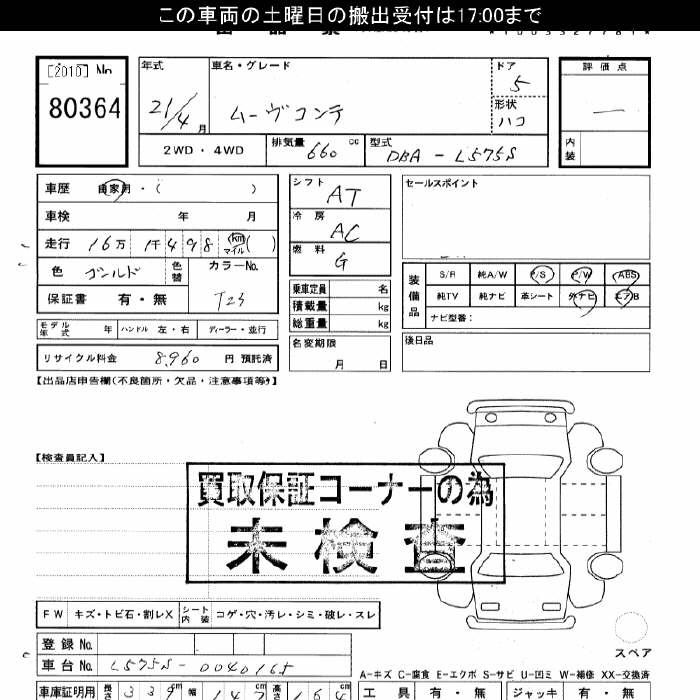 この車両の土曜日の搬出受付は17:00まで
[2010] No
80364
年式 21/4月
車名・グレード ムーヴコンテ
ドア 5
形状 ハコ
評価点 —
内装
2WD・4WD
排気量 660 cc
型式 DBA-L575S
車歴 自家用・( )
車検 年 月
走行 16万 1千498 km マイル ( )
色 ゴールド 色替 カラーNo. T23
保証書 有・無
シフト AT
冷房 AC
燃料 G
乗車定員 名
積載量 kg
総重量 kg
セールスポイント
装備品
S/R 純A/W P/S P/W ABS
純TV 純ナビ 革シート 外ナビ エアB
ナビ型番:
モデル年式 年 ハンドル 左・右 ディーラー・並行
リサイクル料金 8,960 円 預託済
名変期限 月 日
後日品
【出品店申告欄(不良箇所・欠品・注意事項等)】
【検査員記入】
買取保証コーナーの為
未検査
FW キズ・トビ石・割レX シート内装 コゲ・穴・汚レ・シミ・破レ・スレ
登録No.
車台No. L575S-0040165
スペア
A-キズ C-腐食 E-エクボ S-サビ U-凹ミ W-補修 XX-交換済
車庫証明用 長さ 339cm 幅 147 高さ 164
工具 有・無 ジャッキ 有・無